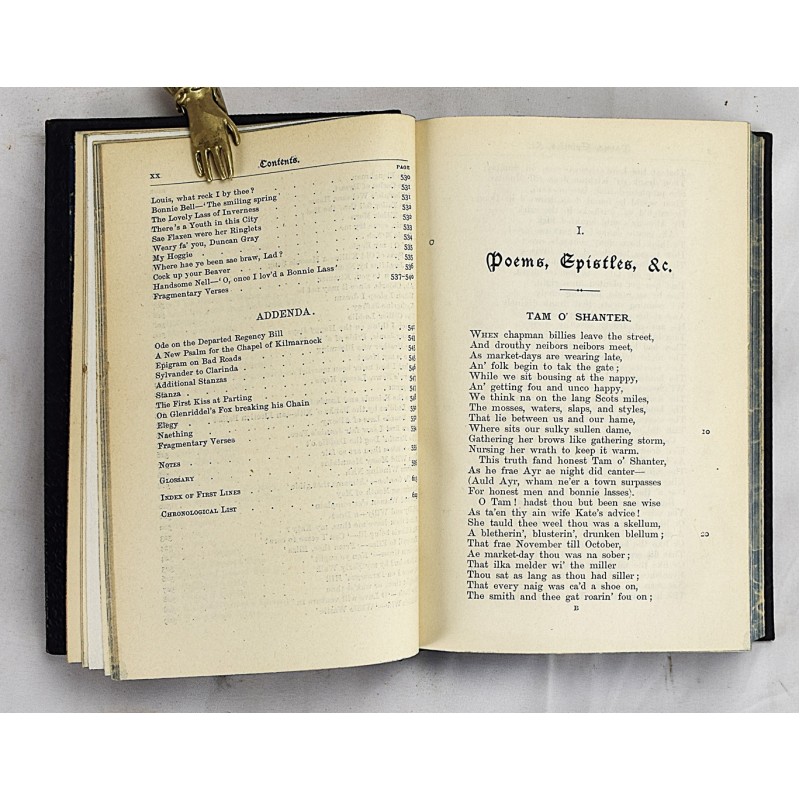 xx Contents.
PAGE
Louis, what reck I by thee? 530
Bonnie Bell—'The smiling spring 531
The Lovely Lass of Inverness 531
There's a Youth in this City 532
Sae Flaxen were her Ringlets 532
Weary fa' you, Duncan Gray 533
My Hoggie 534
Where hae ye been sae braw, Lad? 535
Cock up your Beaver 535
Handsome Nell—'O, once I lov'd a Bonnie Lass' 536
Fragmentary Verses 537-540
ADDENDA.
Ode on the Departed Regency Bill 541
A New Psalm for the Chapel of Kilmarnock
Epigram on Bad Roads
Sylvander to Clarinda
Additional Stanzas
Stanza
The First Kiss at Parting
On Glenriddel's Fox breaking his Chain
Elegy
Naething
Fragmentary Verses
NOTES
GLOSSARY
INDEX OF FIRST LINES
CHRONOLOGICAL LIST
I.
Poems, Epistles, &c.
TAM O' SHANTER.
WHEN chapman billies leave the street,
And drouthy neibors neibors meet,
As market-days are wearing late,
An' folk begin to tak the gate;
While we sit bousing at the nappy,
An' getting fou and unco happy,
We think na on the lang Scots miles,
The mosses, waters, slaps, and styles,
That lie between us and our hame,
Where sits our sulky sullen dame, 10
Gathering her brows like gathering storm,
Nursing her wrath to keep it warm.
This truth fand honest Tam o' Shanter,
As he frae Ayr ae night did canter—
(Auld Ayr, wham ne'er a town surpasses
For honest men and bonnie lasses).
O Tam! hadst thou but been sae wise
As ta'en thy ain wife Kate's advice!
She tauld thee weel thou was a skellum,
A bletherin', blusterin', drunken blellum; 20
That frae November till October,
Ae market-day thou was na sober;
That ilka melder wi' the miller
Thou sat as lang as thou had siller;
That every naig was ca'd a shoe on,
The smith and thee gat roarin' fou on;
B